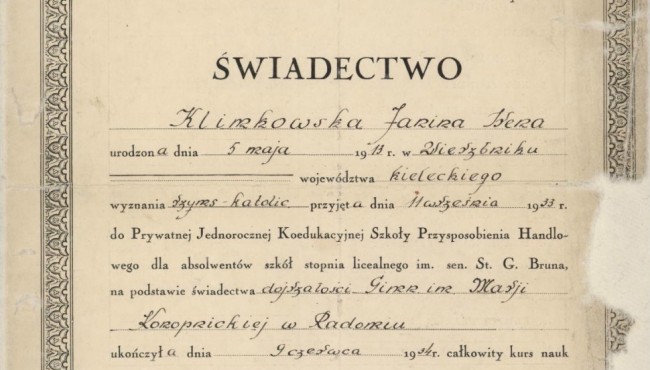 ŚWIADECTWO
Klimkowska Janina Wera
urodzona dnia 5 maja 1913 r. w Wierzbniku
województwa kieleckiego
wyznania rzyms-katolic przyjęta dnia 11 września 1933 r.
do Prywatnej Jednorocznej Koedukacyjnej Szkoły Przysposobienia Handlo-
wego dla absolwentów szkół stopnia licealnego im. sen. St. G. Bruna,
na podstawie świadectwa dojrzałości Gimn im. Marji
Konopnickiej w Radomiu
ukończyła dnia 9 czerwca 1934 r. całkowity kurs nauk